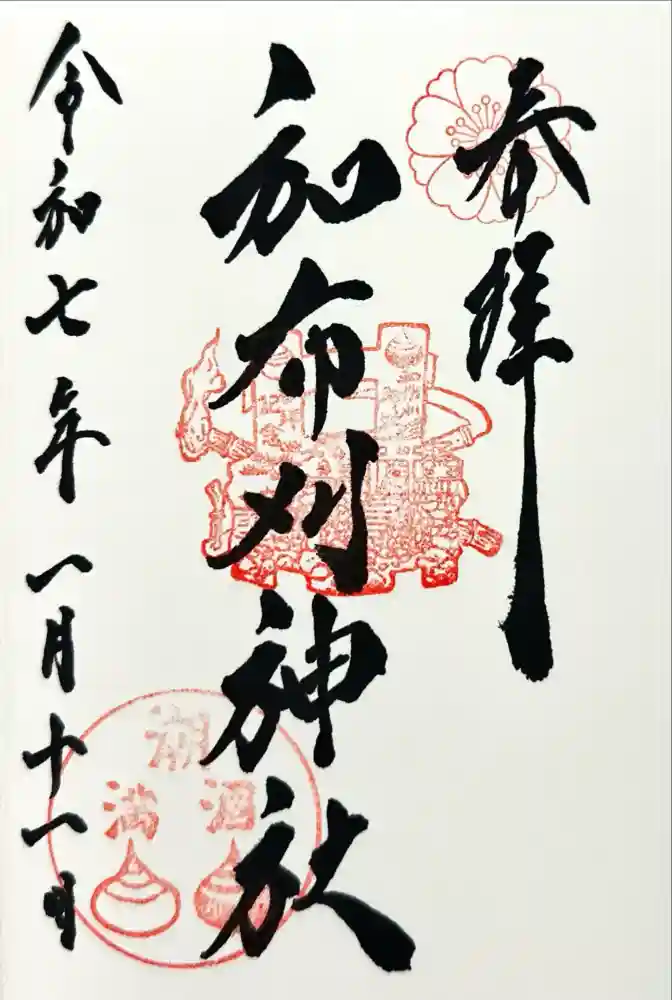 奉拝
加布刈神社
令和七年一月十一日
潮
満 涸